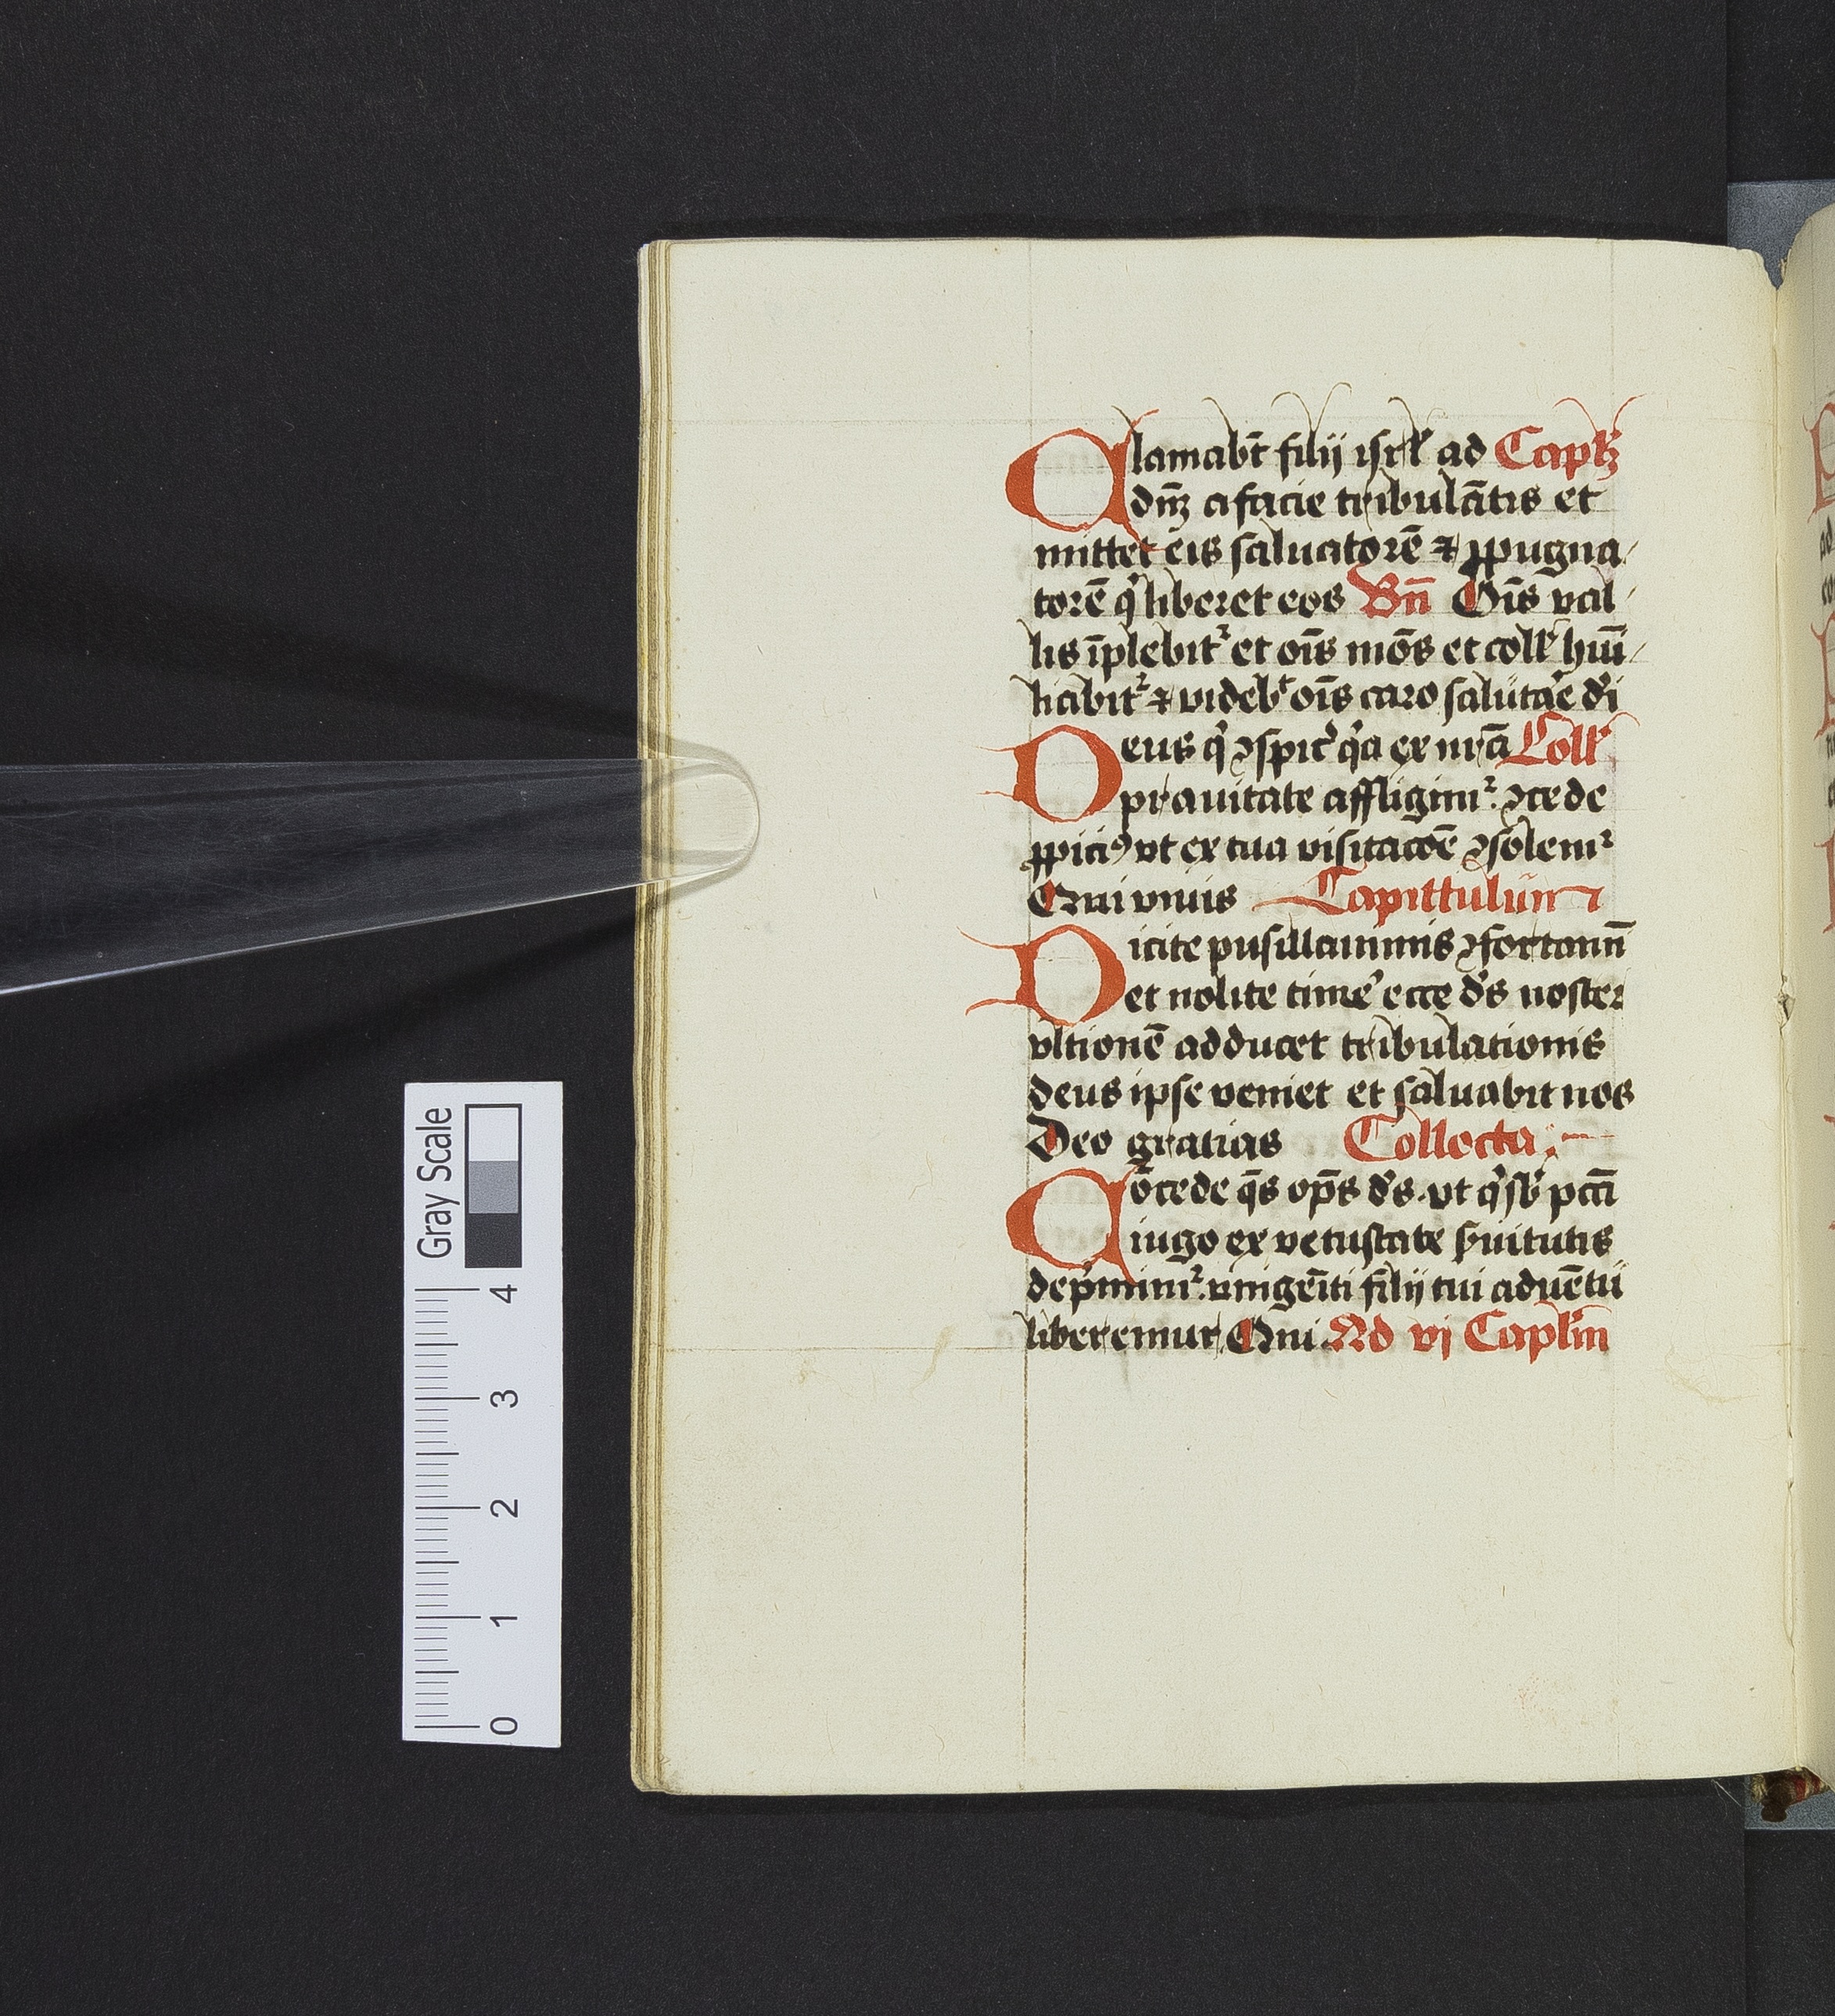 Clamabt̄ filij isrl̄ ad Caplꝫ
dn̄ꝫ a facie tribulātis et
mittet eis saluatorē ⁊ ꝓpugna
torē qͥ liberet eos Bn̄ Oīs val
lis īplebit᷑ et oīs mōs et coll' hūi
liabit᷑ ⁊ videbᵗ oīs caro salutāe dī
Deus qͥ ꝯspicˢ qͥa ex nr̄a Coll'
prauitate affligim᷑. ꝯcede
ꝓpiciꝰ vt ex tua visitacōe ꝯsolem᷑
Qui viuis Capittulum
Dicite pusillanimis ꝯfortamī
et nolite time' ecce ds̄ noster
vltionē adducet tribulationis
deus ipse veniet et saluabit nos
Deo gratias Collecta
Cōcede qs̄ op̄s ds̄. vt qͥ sb̄ pcc̄i
iugo ex vetustate ẜuitutis
dep̄mim᷑. vnigēiti filij tui aduētū
liberemur. Qui. Ad vj Caplm̄
Gray Scale
4
3
2
1
0